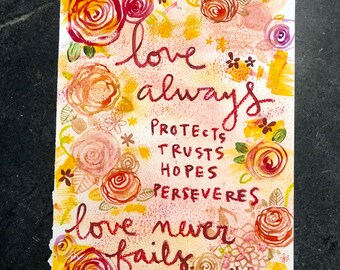 love
always
PROTECTS
TRUSTS
HOPES
PERSEVERES
love never
fails.